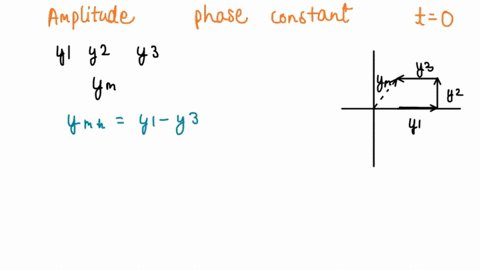 Amplitude phase constant t=0
y1 y2 y3
ym
ymh = y1 - y3
ym y3
y2
y1